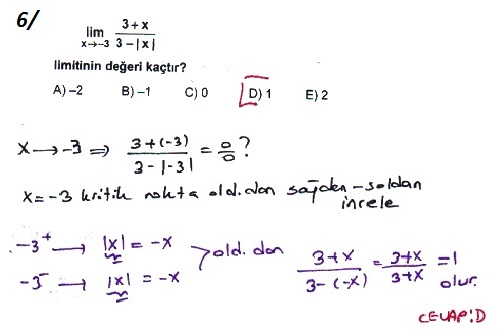 6/
lim x→-3 3+x / 3-|x|
limitinin değeri kaçtır?
A) -2 B) -1 C) 0 D) 1 E) 2
x → -3 ⇒ 3+(-3) / 3-|-3| = 0/0 ?
x = -3 kritik nokta old.dan sağdan-soldan
incele
-3⁺ → |x| = -x
-3⁻ → |x| = -x
old.dan 3+x / 3-(-x) = 3+x / 3+x = 1
olur.
CEVAP:D